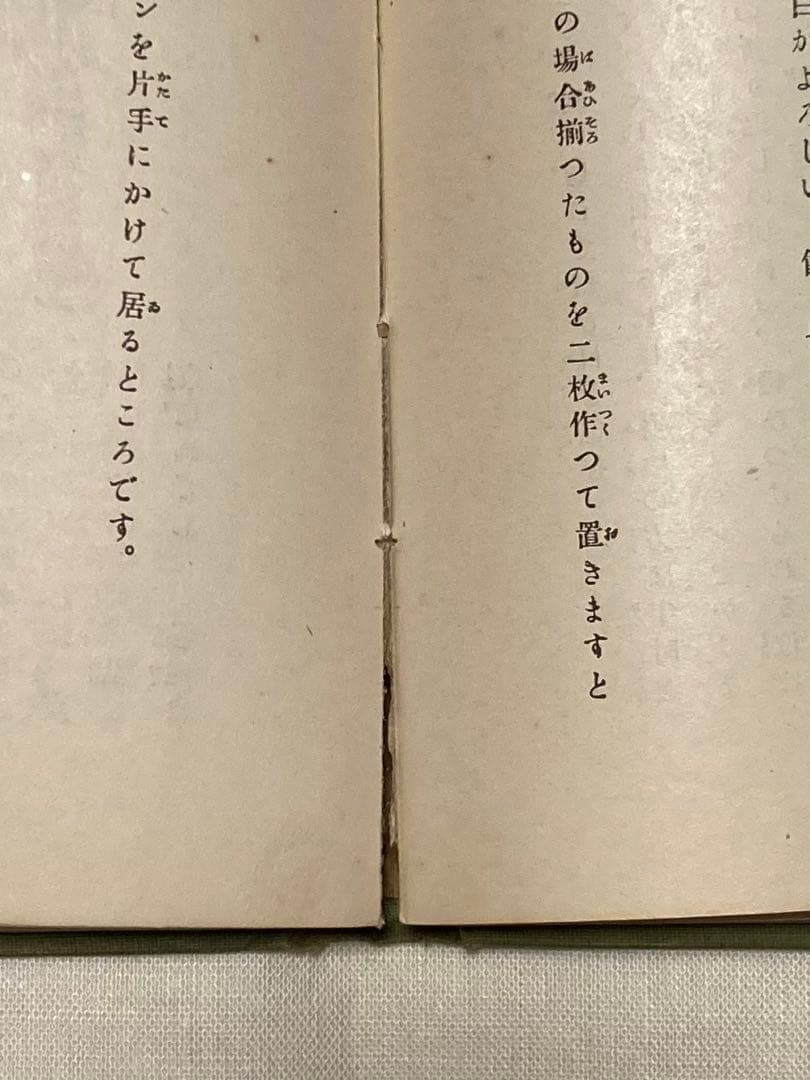 がよろしい
の場合揃つたものを二枚作つて置きますと
ンを片手にかけて居るところです。